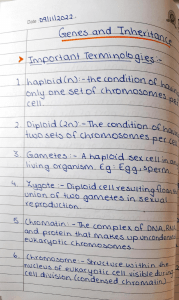 Date 09/11/2022
Genes and Inheritance
Important Terminologies :-
1. haploid (n) :- the condition of having
only one set of chromosomes per
cell.
2. Diploid (2n) :- The condition of
two sets of chromosomes per cell
3. Gametes :- A haploid sex cell in
living organism. Eg: Egg, sperm.
4. Zygote :- Diploid cell resulting from
union of two gametes in sexual
reproduction.
5. Chromatin - The complex of DNA, RNA
and protein that makes up
eukaryotic chromosomes.
6. Chromosome - Structure within the
nucleus of eukaryotic cell visible during
cell division (condensed chromatin)